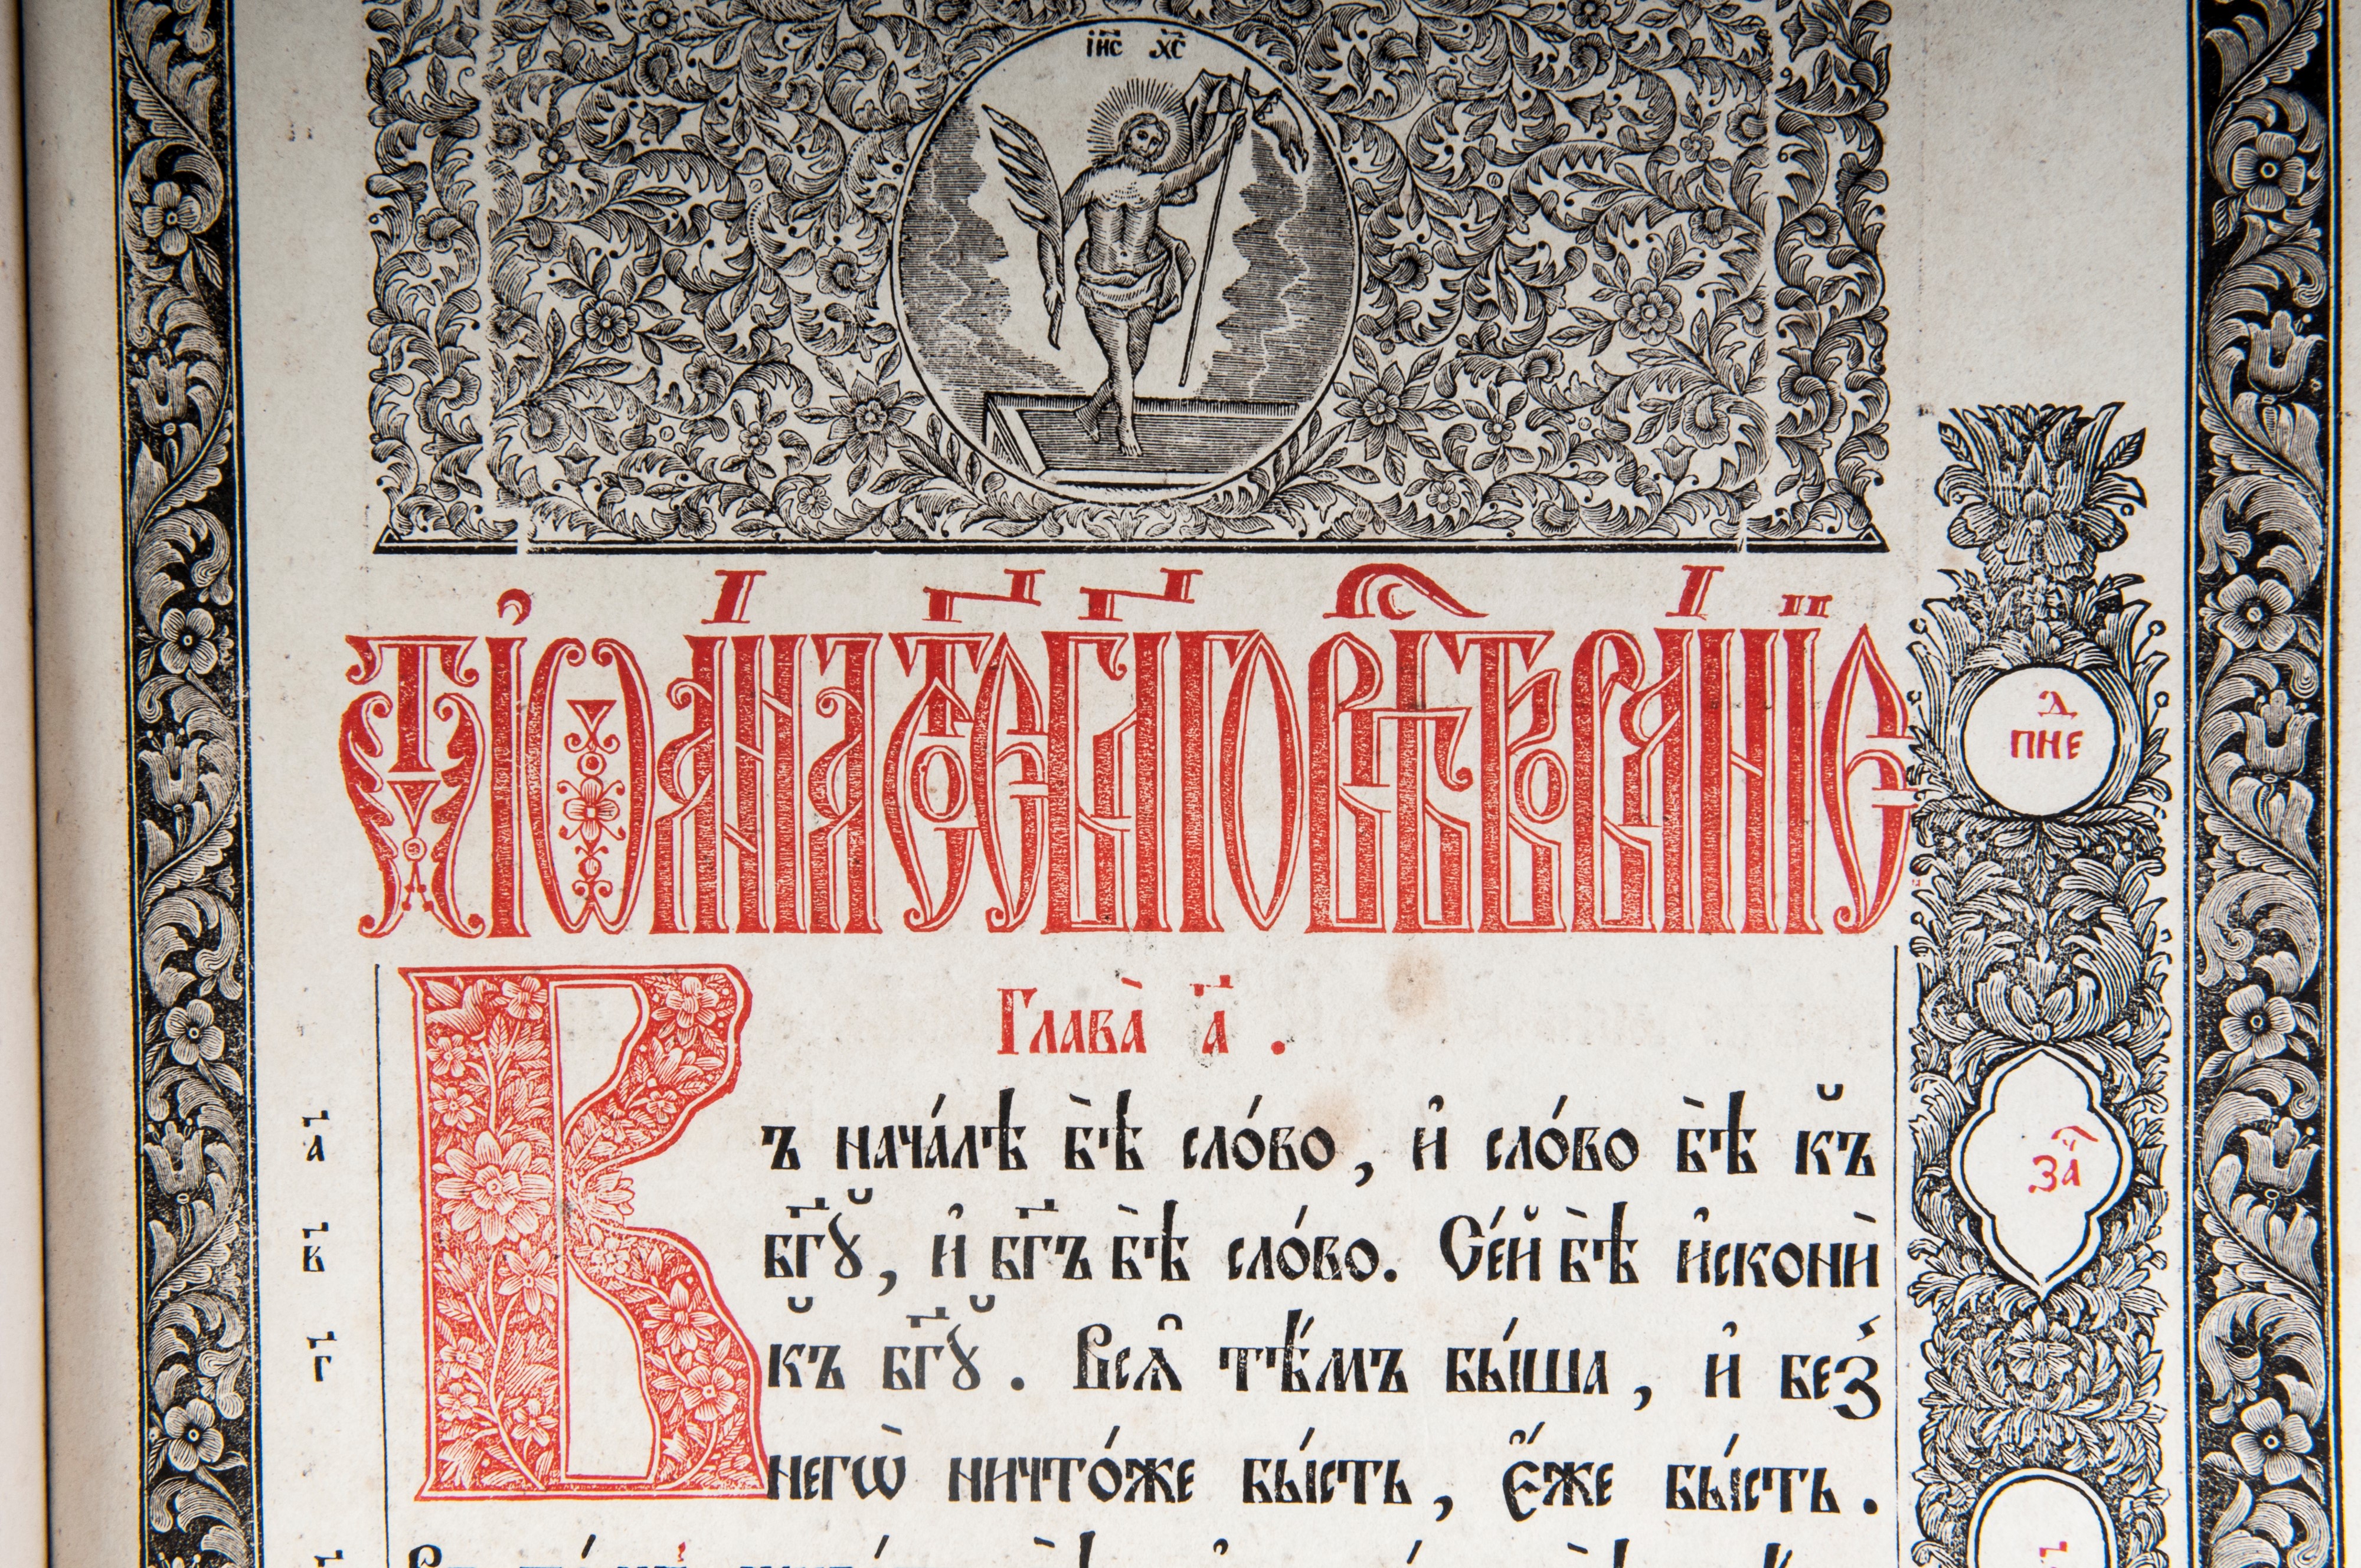 і҆и҃с хс҃
Ѿ і҆ѡа́нна ст҃о́е бл҃говѣствова́нїе
д
пне
Глава̀ а҃ .
а҃
Въ нача́лѣ бѣ̀ сло́во, и҆ сло́во бѣ̀ къ
за҃ч
в҃
бг҃ꙋ, и҆ бг҃ъ бѣ̀ сло́во. Се́й бѣ̀ и҆сконѝ
г҃
къ бг҃ꙋ . Всѧ҄ тѣ́мъ бы́ша , и҆ без̾
негѡ̀ ничто́же бы́сть , є҆́же бы́сть .